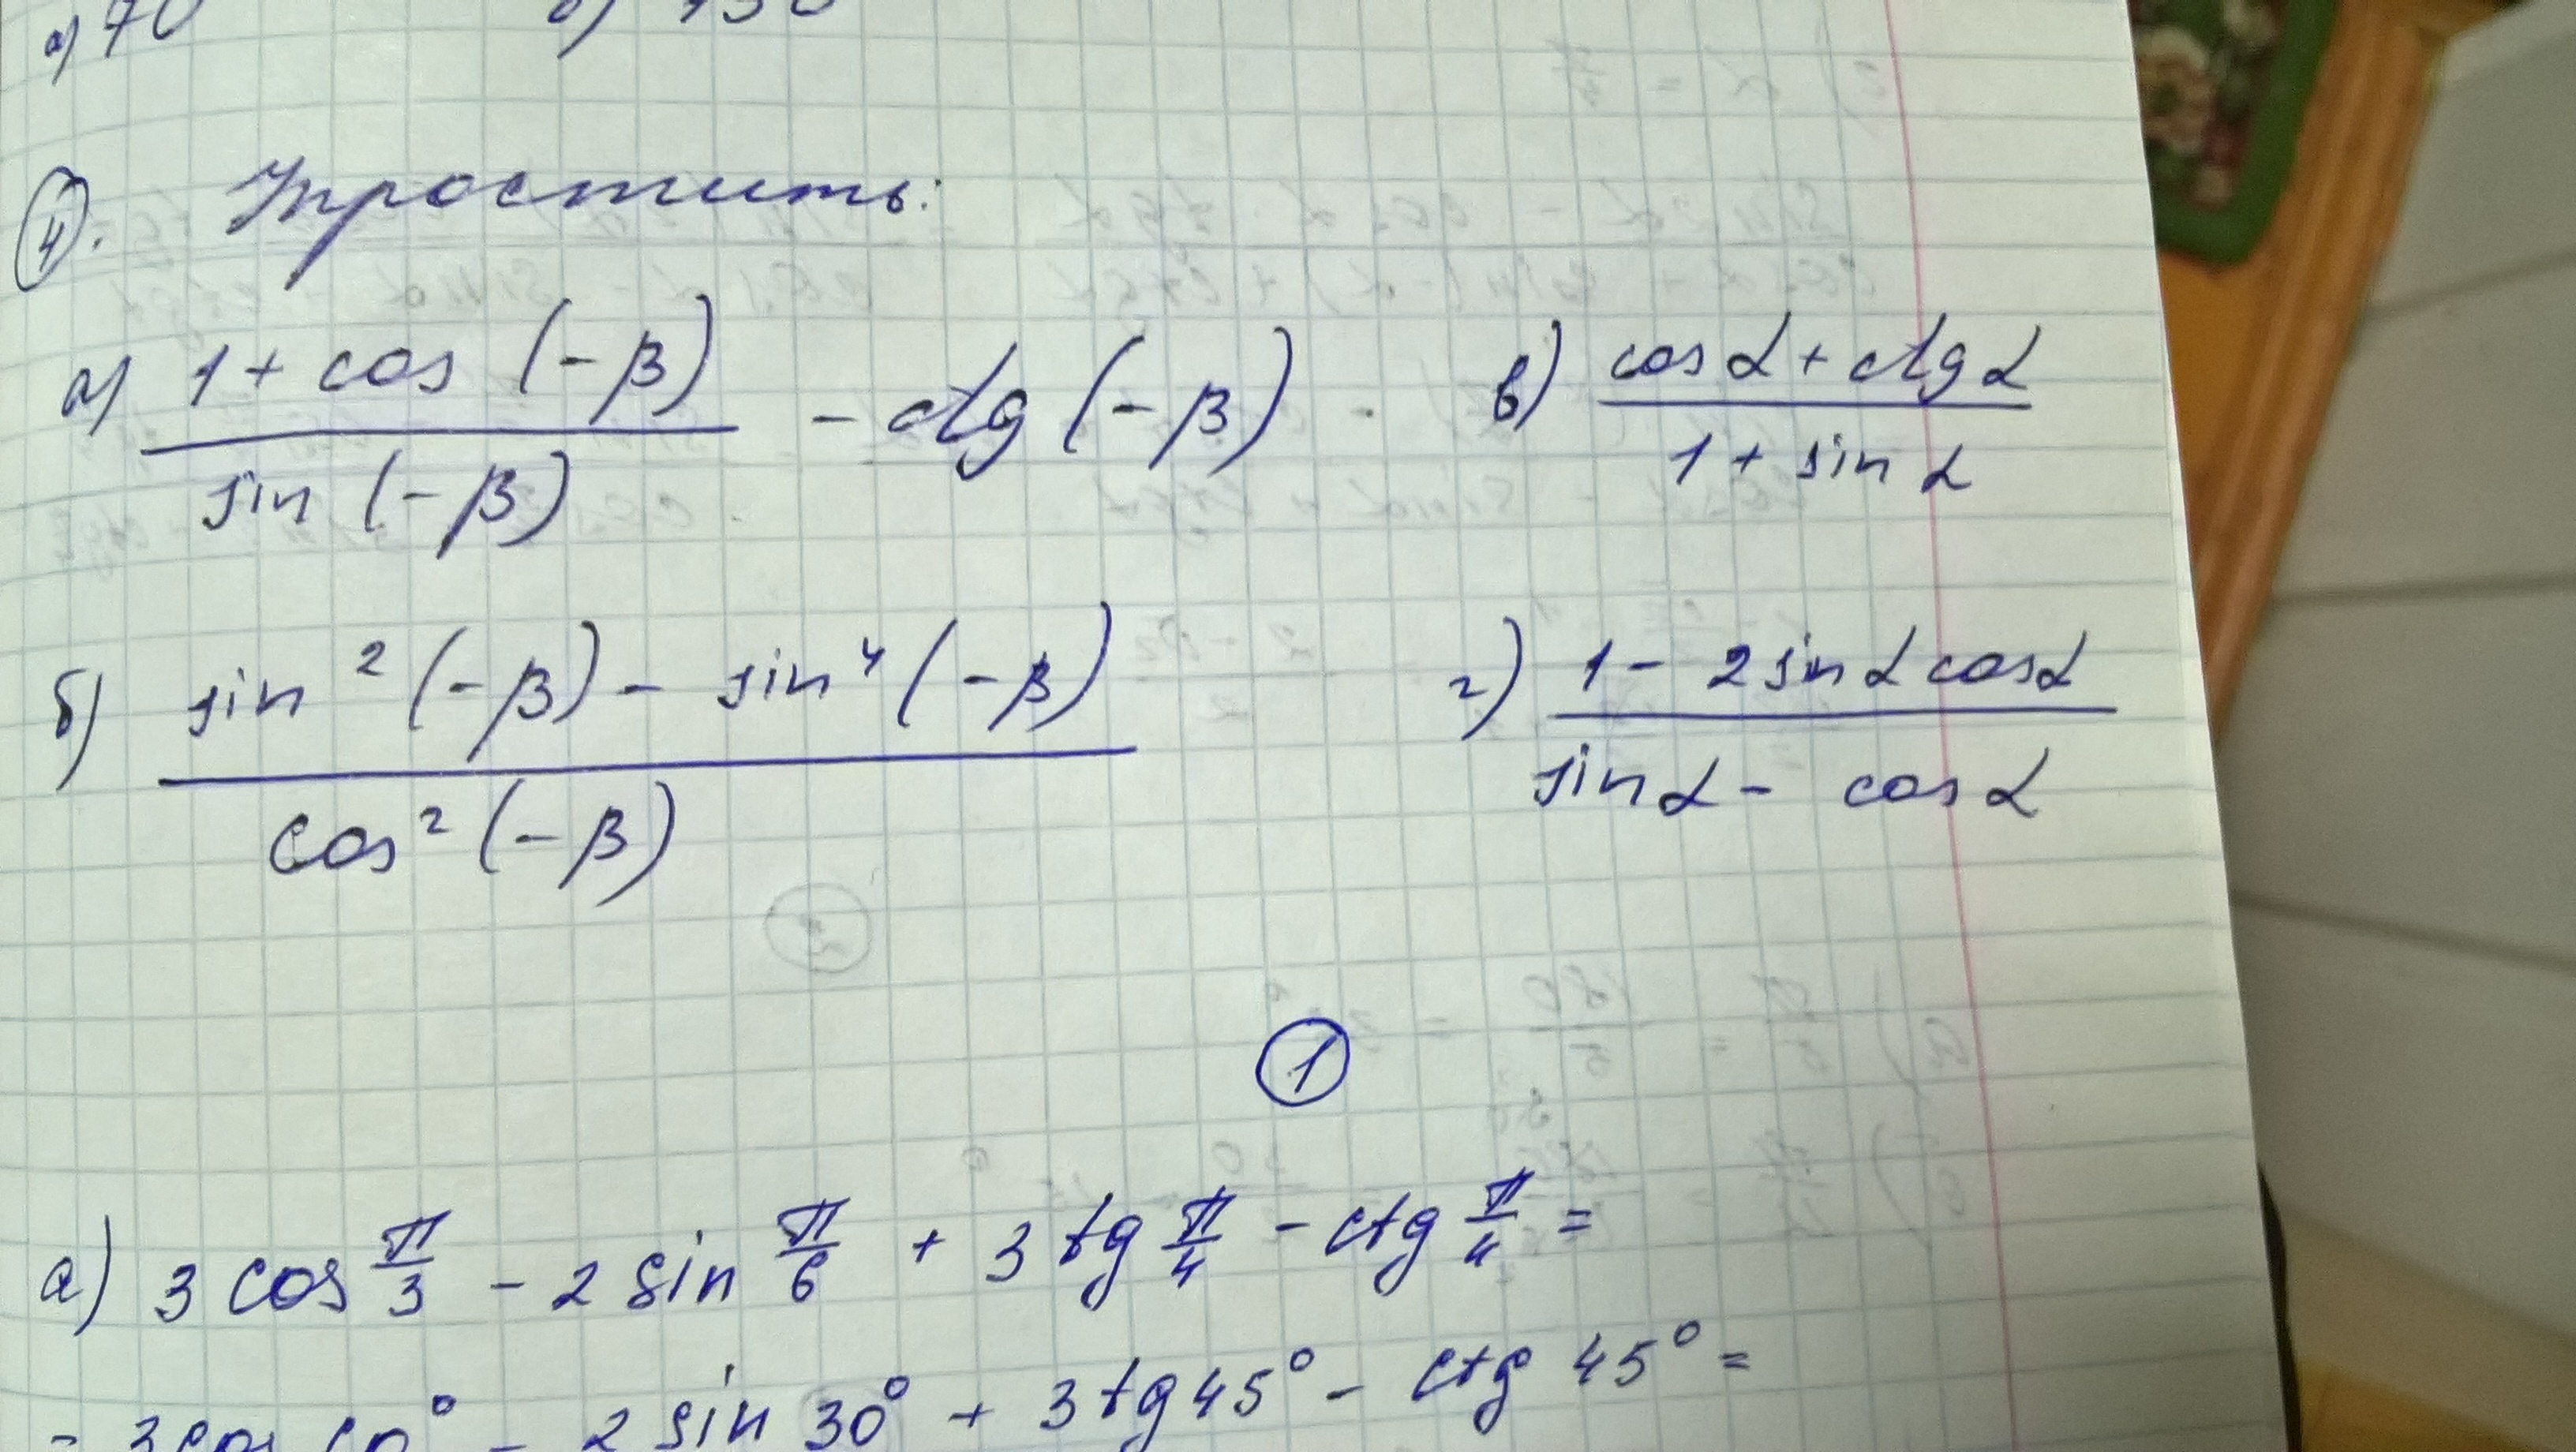 а) 70 б) 130
4. Упростить:
а) (1 + cos (-β)) / (sin (-β)) - ctg (-β) в) (cos α + ctg α) / (1 + sin α)
б) (sin² (-β) - sin⁴ (-β)) / (cos² (-β)) г) (1 - 2 sin α cos α) / (sin α - cos α)
1
а) 3 cos π/3 - 2 sin π/6 + 3 tg π/4 - ctg π/4 =
= 3 cos 60° - 2 sin 30° + 3 tg 45° - ctg 45° =